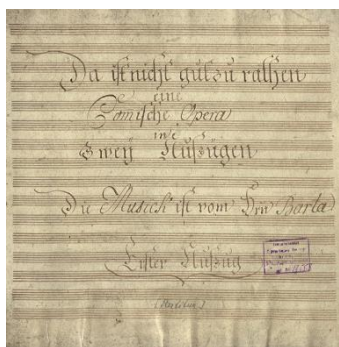 Da ist nicht gut zu rathen
eine
Comische Opera
in
Zwey Aufzügen
Die Musick ist vom Hrn Barta
Erster Aufzug